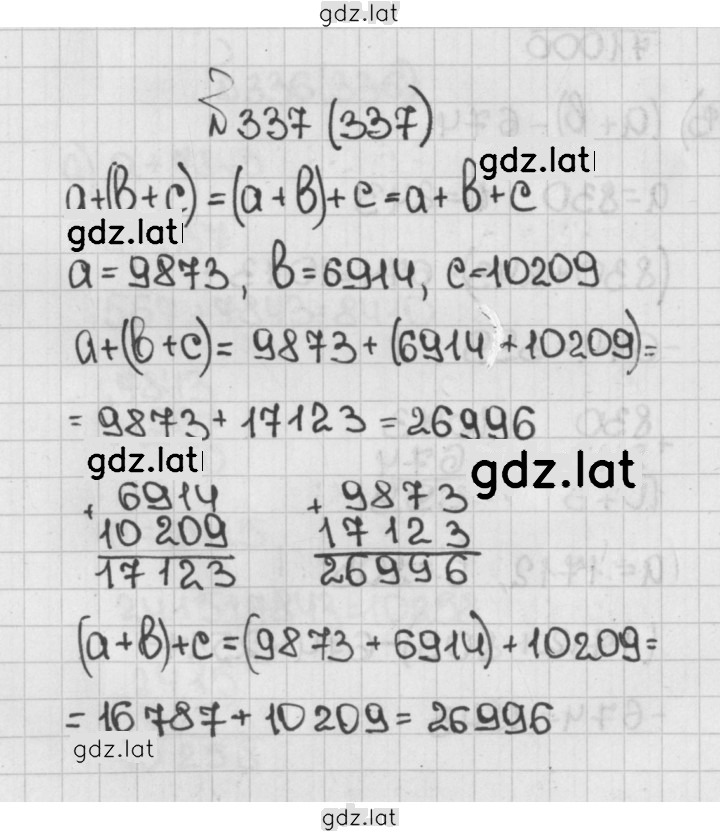 gdz.lat
№ 337 (337)
gdz.lat
a+(b+c)=(a+b)+c=a+b+c
gdz.lat
a=9873, b=6914, c=10209
a+(b+c)= 9873+(6914+10209)=
=9873+17123=26996
gdz.lat
gdz.lat
+ 6914 + 9873
10 209 17 123
17 123 26996
(a+b)+c=(9873+6914)+10209=
=16 787+10 209=26996
gdz.lat
gdz.lat